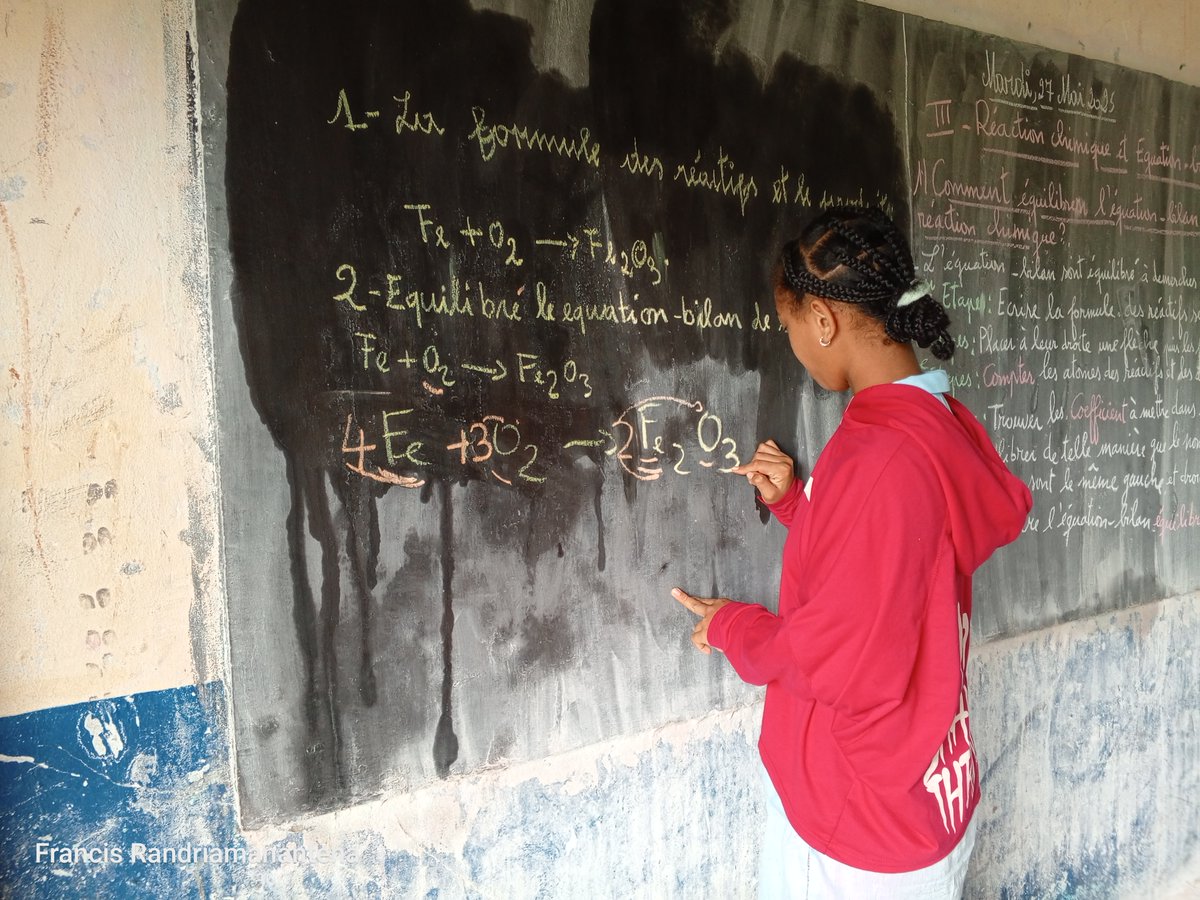 1- La formule des réactifs et le
Fe + O₂ → Fe₂O₃.
2-Equilibré le equation-bilan de
Fe + O₂ → Fe₂O₃
4Fe +3O₂ → 2Fe₂O₃
Mardi, 27 Mai 2025
III - Réaction chimique et Equation-
1) Comment équilibrer l'équation-bilan
réaction chimique?
L'équation-bilan sont équilibré à
Etapes: Ecrire la formule des réactifs
: Placer à leur droite une flèche
: Compter les atomes des réactifs et des
Trouver les Coefficient à metre dans
de telle manière que le
sont le même gauche et
l'équation-bilan
THT
Francis